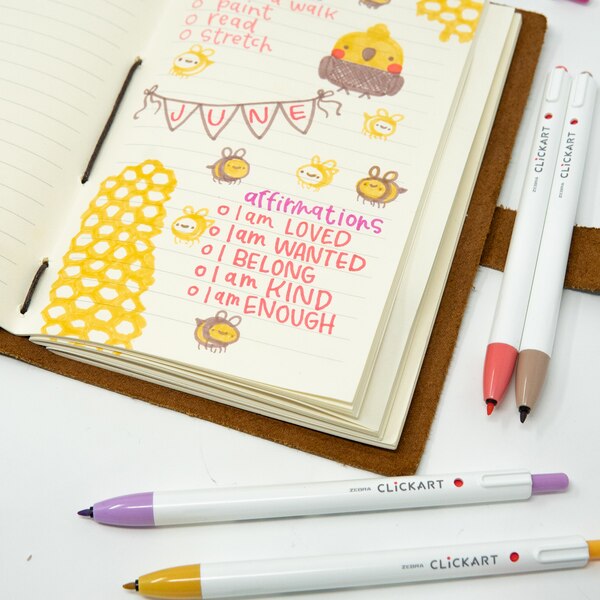 a walk
o paint
o read
o stretch
JUNE
affirmations
o I am LOVED
o I am WANTED
o I BELONG
o I am KIND
o I am ENOUGH
ZEBRA CLiCKART
ZEBRA CLiCKART
ZEBRA CLiCKART
ZEBRA CLiCKART